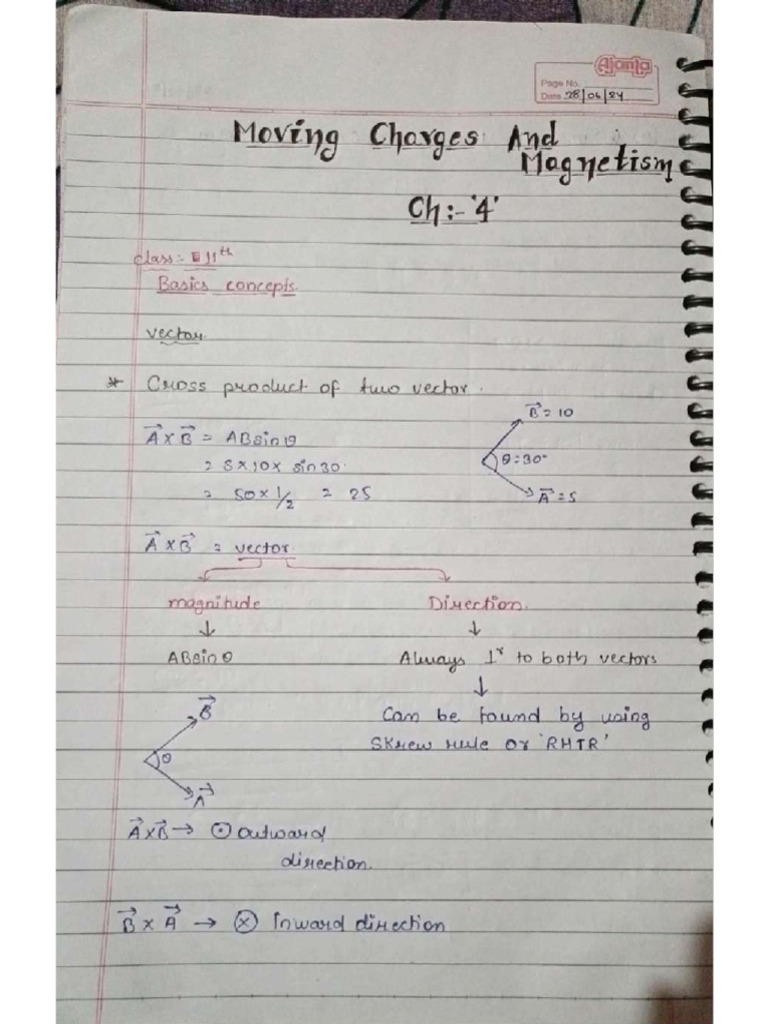 Ajanta
Page No.
Date 28/06/24
Moving Charges And
Magnetism
Ch:- '4'
class:- 11th
Basics concepts.
vector.
* Cross product of two vector.
B⃗ = 10
A⃗ x B⃗ = AB sin θ
θ = 30°
= 5 x 10 x sin 30
= 50 x 1/2 = 25
A⃗ = 5
A⃗ x B⃗ = vector.
magnitude Direction.
↓ ↓
AB sin θ Always ⊥r to both vectors
↓
B⃗ Can be found by using
θ Skrew rule or 'RHTR'
A⃗
A⃗ x B⃗ → ⊙ outward
direction.
B⃗ x A⃗ → ⊗ Inward direction